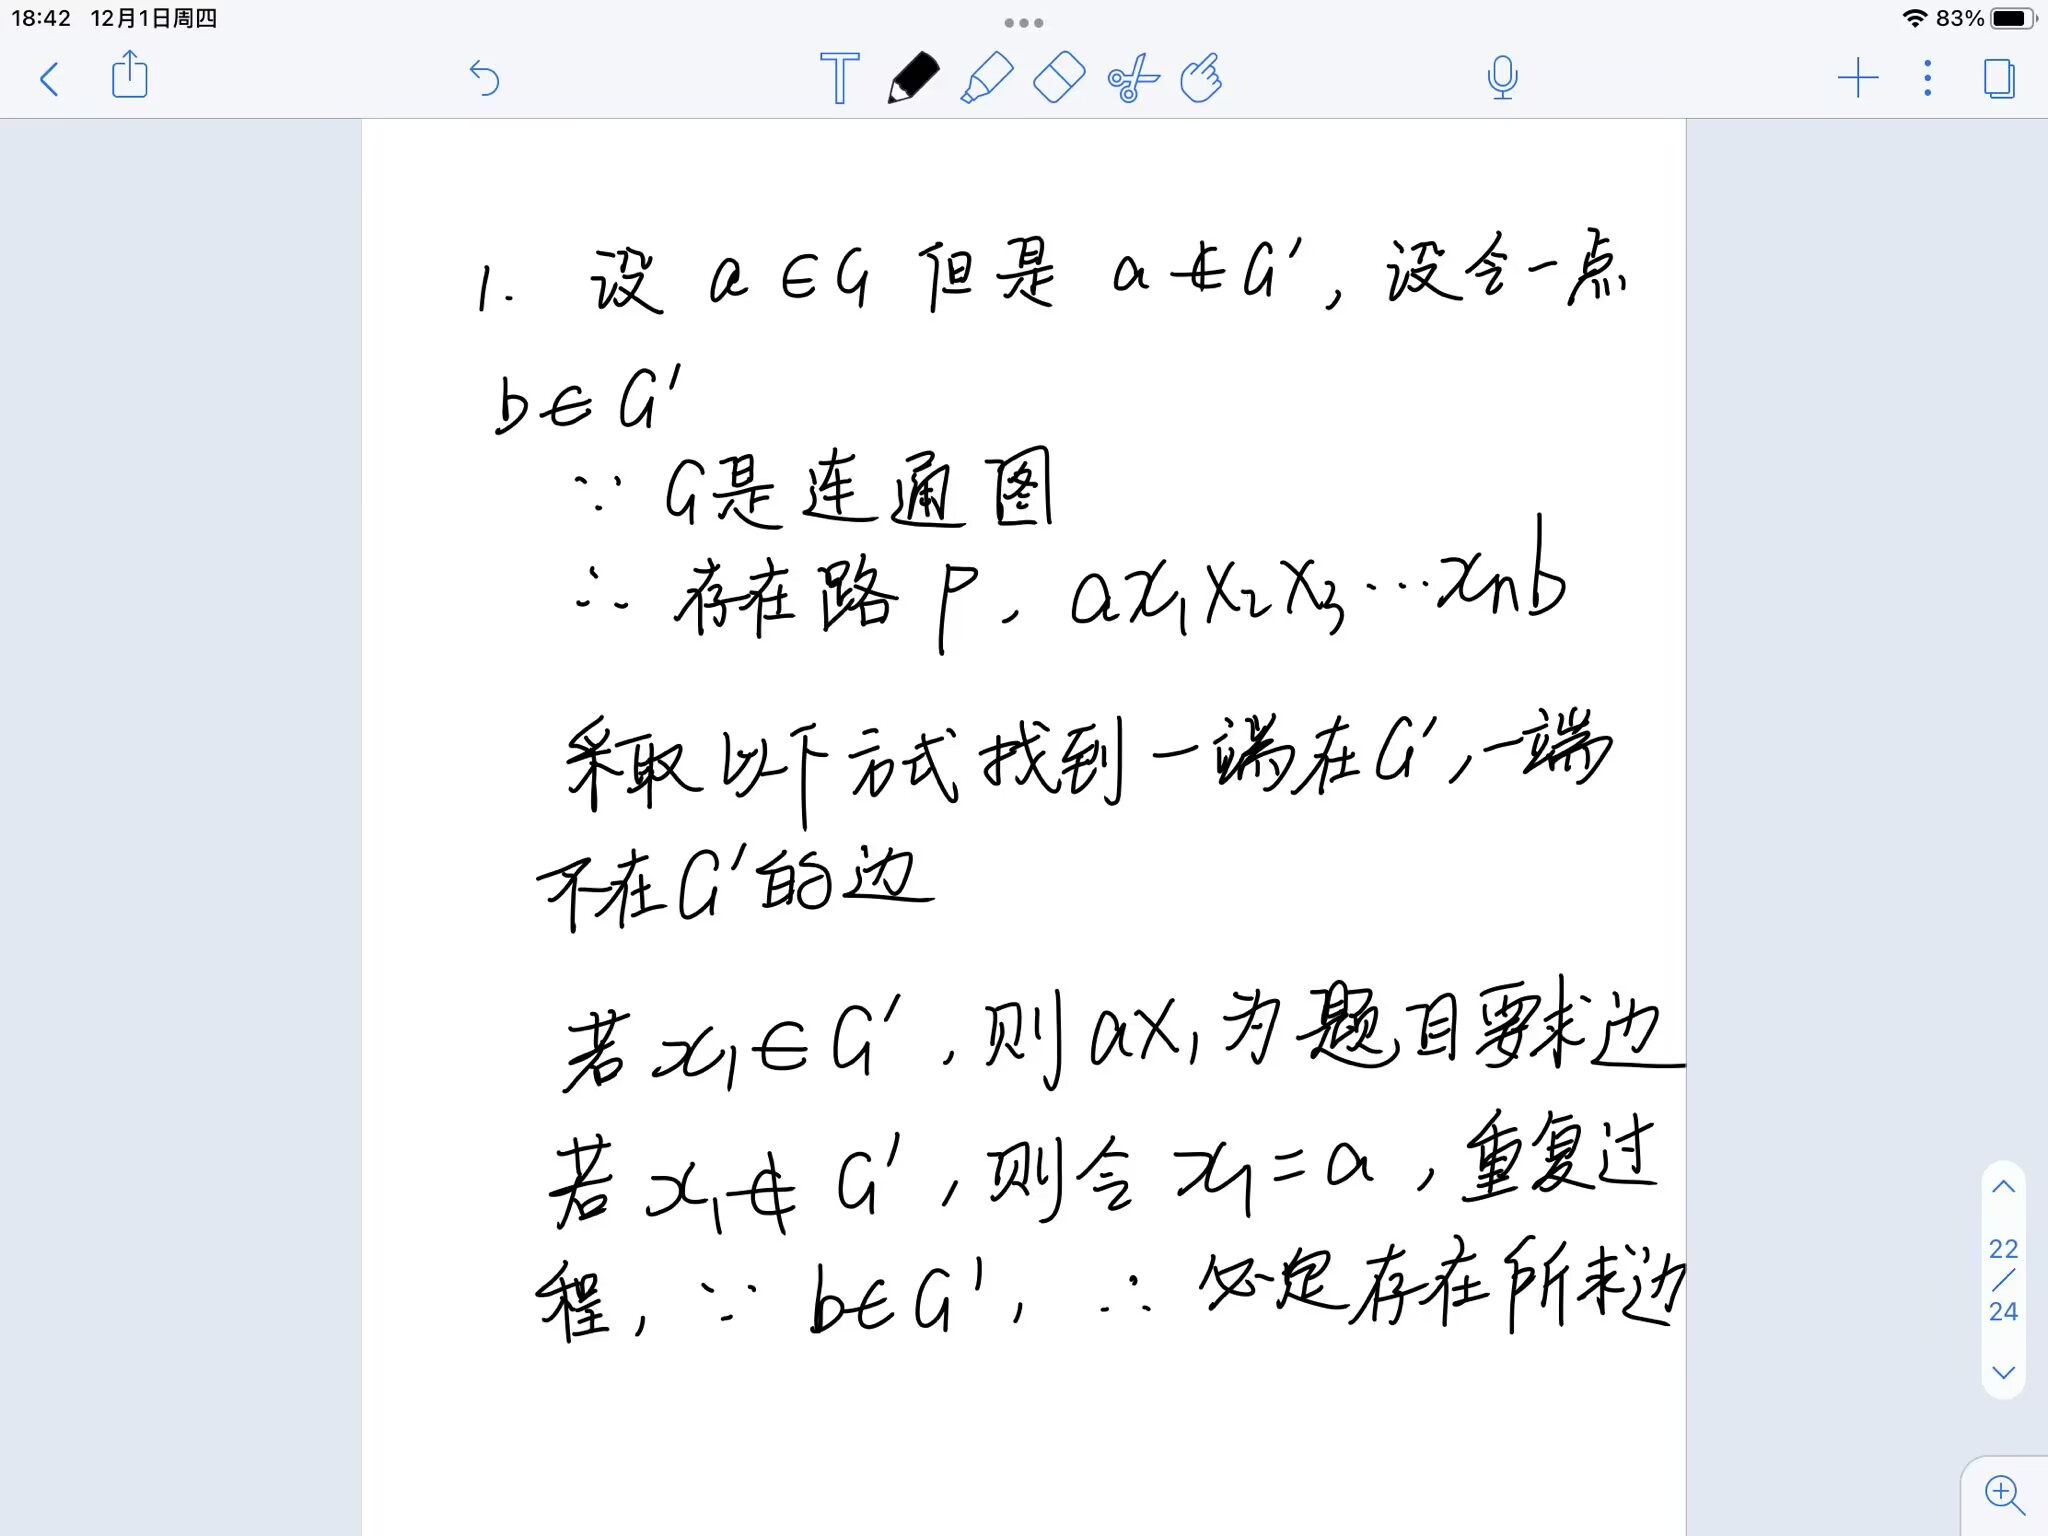 18:42 12月1日周四
83%
1. 设 a∈G 但是 a∉G′, 设令一点
b∈G′
∵ G是连通图
∴ 存在路 P, ax₁x₂x₃…xₙb
采取以下方式找到一端在G′,一端
不在G′的边
若 x₁∈G′,则ax₁为题目要求边
若 x₁∉G′,则令 x₁=a,重复过
程, ∵ b∈G′, ∴ 必定存在所求边
22
/
24